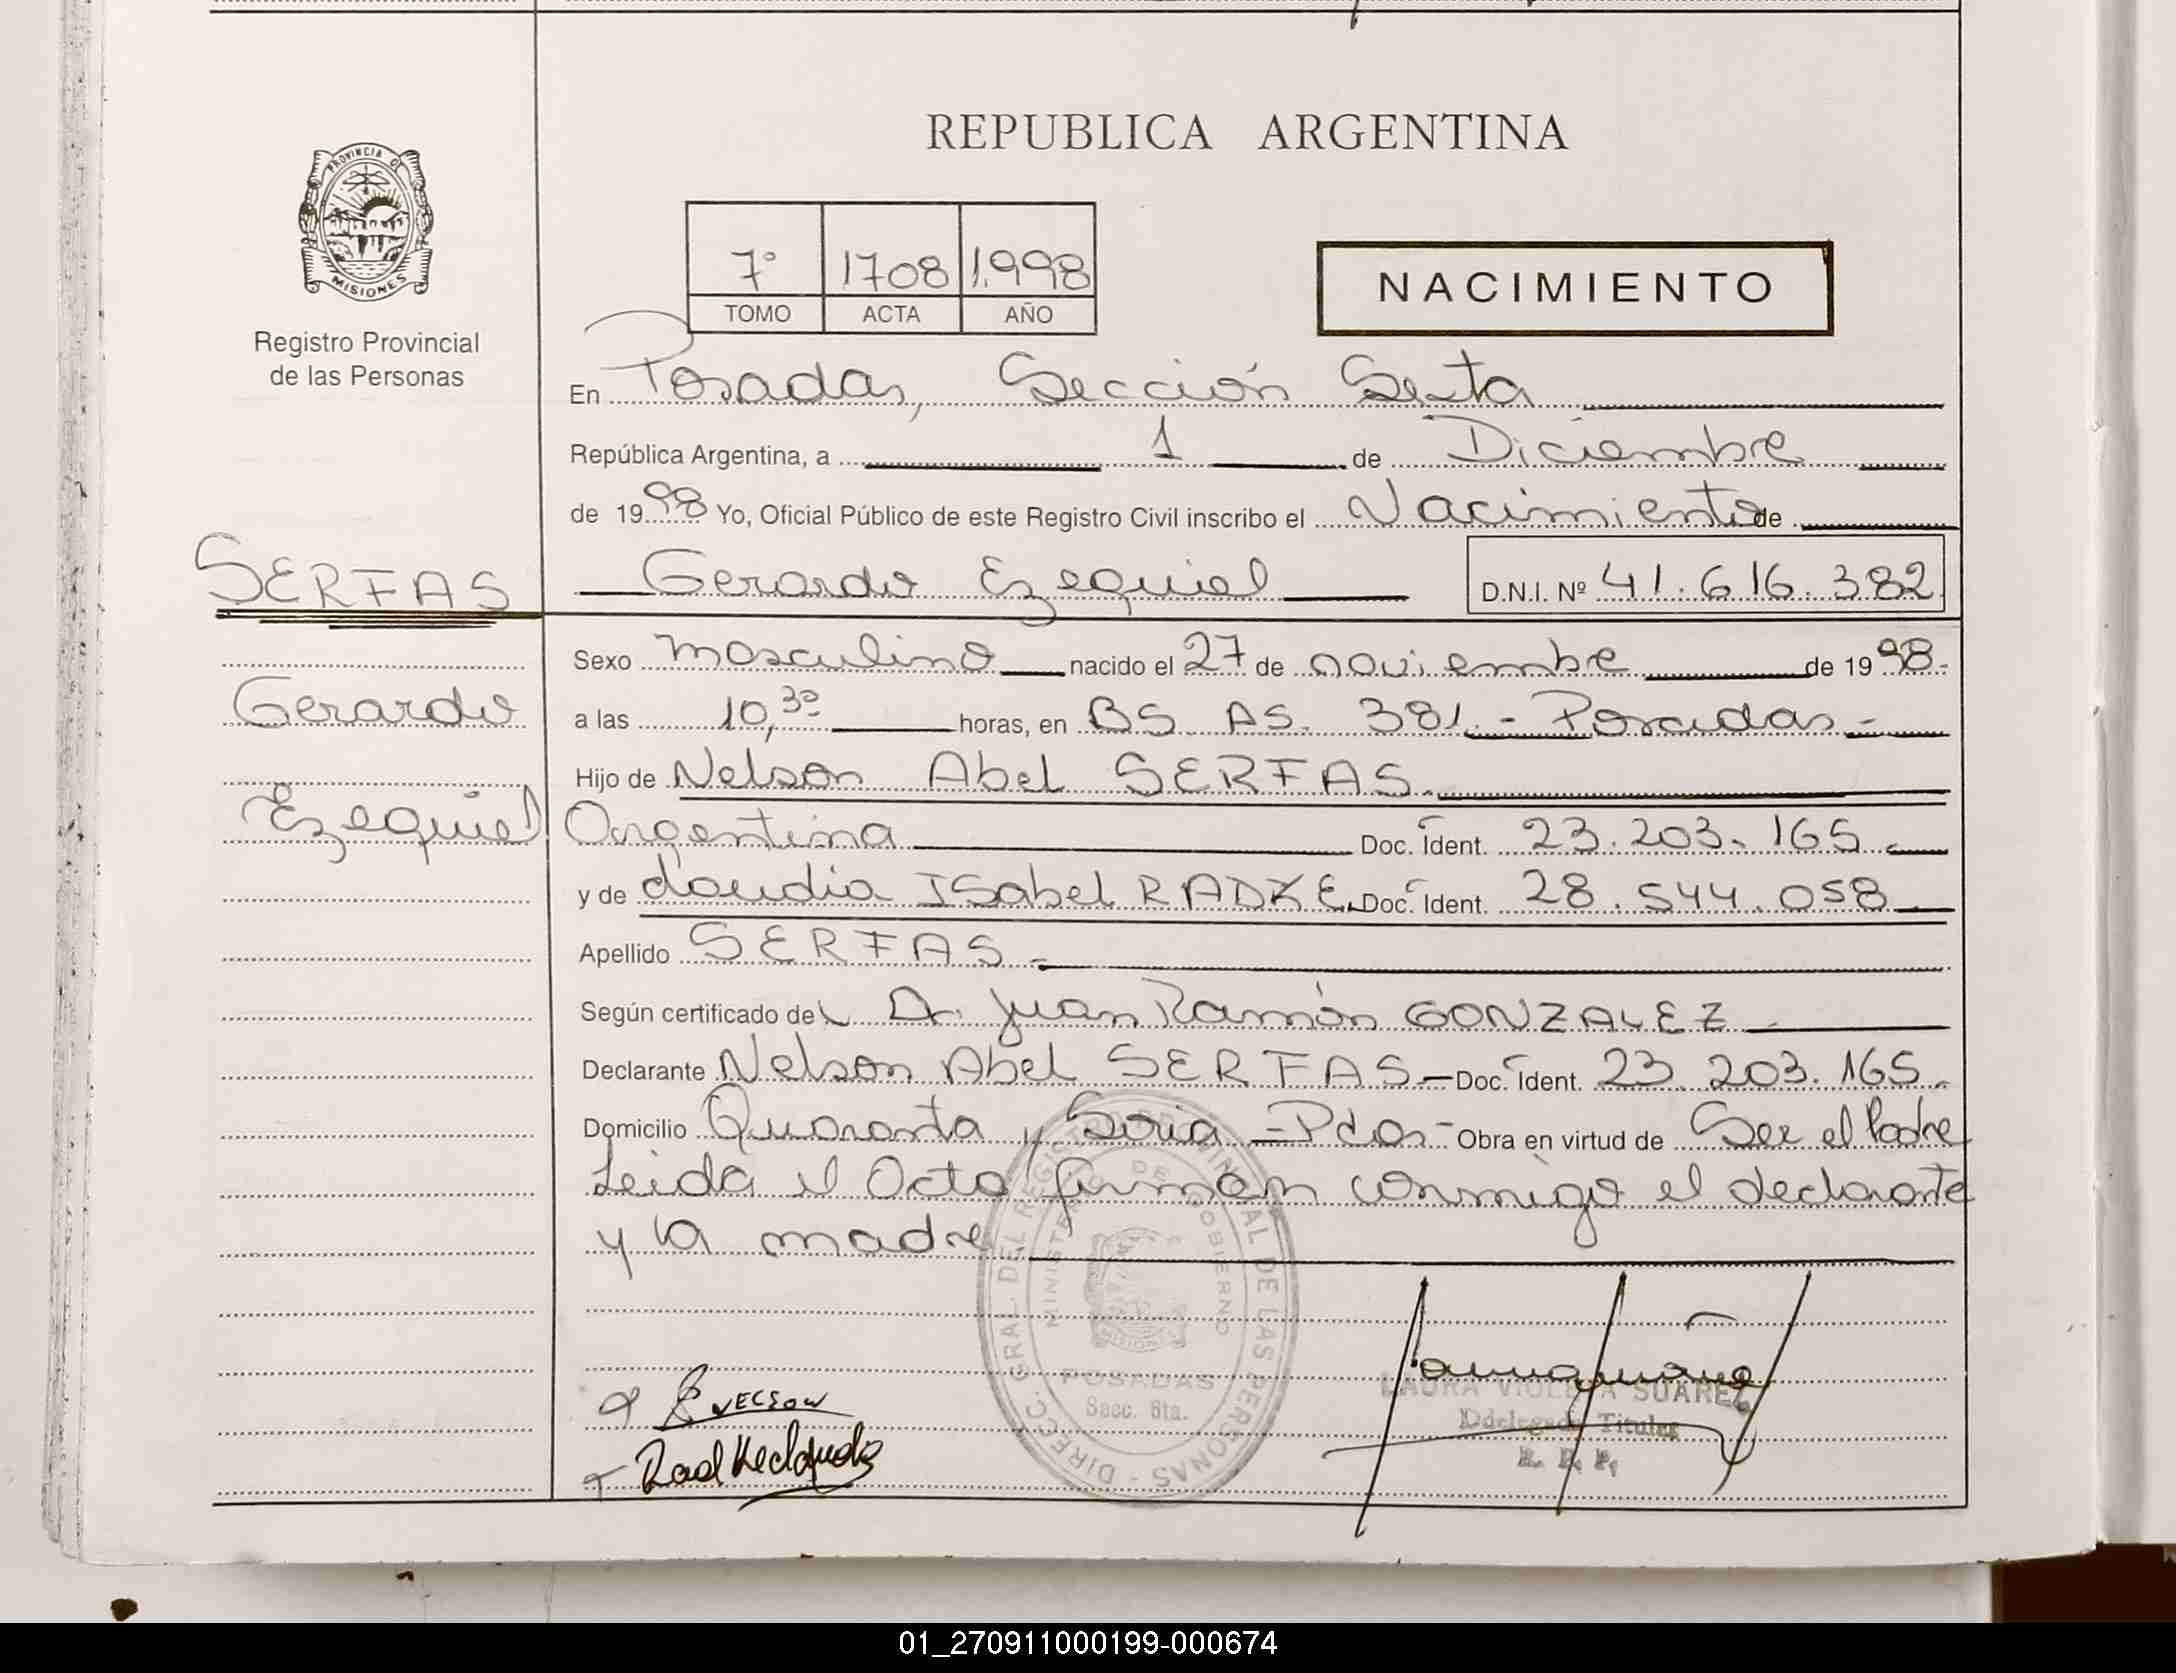 REPUBLICA ARGENTINA
PROVINCIA DE
MISIONES
Registro Provincial
de las Personas
7° 1708 1.998
TOMO ACTA AÑO
NACIMIENTO
En Posadas, Sección Sexta
República Argentina, a 1 de Diciembre
de 1998 Yo, Oficial Público de este Registro Civil inscribo el Nacimiento de
SERFAS
Gerardo Ezequiel D.N.I. Nº 41.616.382
Sexo masculino nacido el 27 de noviembre de 1998.-
Gerardo
a las 10,30 horas, en BS. AS. 381.- Posadas.-
Hijo de Nelson Abel SERFAS.
Ezequiel
Argentina Doc. Ident. 23.203.165.-
y de Claudia ISabel RADKE. Doc. Ident. 28.544.058
Apellido SERFAS.
Según certificado del Dr. Juan Ramón GONZALEZ
Declarante Nelson Abel SERFAS — Doc. Ident. 23.203.165.
Domicilio Quaranta y Soria - Pdas- Obra en virtud de Ser el Padre
Leida el Acta firman conmigo el declarante
y la madre
DIRECC. GRAL. DEL REGISTRO PROVINCIAL DE LAS PERSONAS -
MINISTERIO DE GOBIERNO
POSADAS
Secc. 6ta.
NELSON
LAURA VIOLETA SUAREZ
Delegada Titular
R. P. P.
01_270911000199-000674